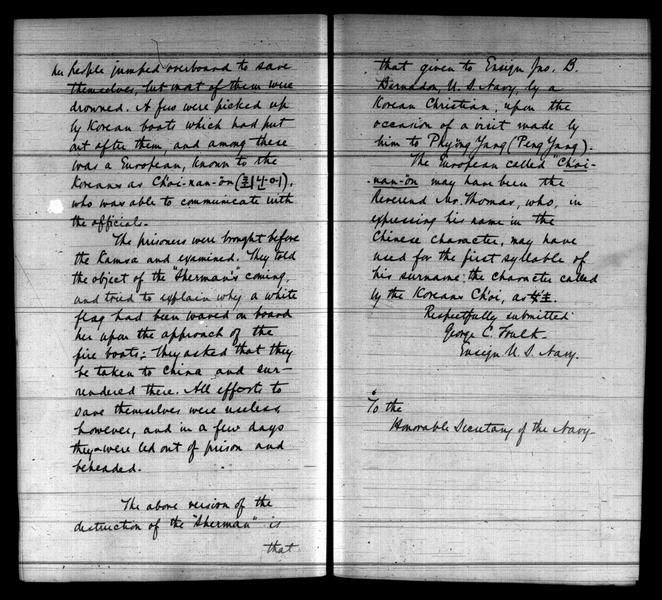 her people jumped overboard to save
themselves, but most of them were
drowned. A few were picked up
by Korean boats which had put
out after them, and among these
was a European, known to the
Koreans as Ch'oi-nan-ŏn (최난어),
who was able to communicate with
the officials.
The prisoners were brought before
the Kamsa and examined. They told
the object of the "Sherman's" coming,
and tried to explain why a white
flag had been waved on board
her upon the approach of the
fire boats; they asked that they
be taken to China and sur-
rendered there. All efforts to
save themselves were useless,
however, and in a few days
they were led out of prison and
beheaded.
The above version of the
destruction of the "Sherman" is
that
that given to Ensign Jno. B.
Bernadon, U. S. Navy, by a
Korean Christian, upon the
occasion of a visit made by
him to Phyöng Yang (Peng Yang).
The European called "Ch'oi-
nan-ŏn may have been the
Reverend Mr. Thomas, who, in
expressing his name in the
Chinese character, may have
used for the first syllable of
his surname, the character called
by the Koreans Ch'oi, as
Respectfully submitted
George C. Foulk.
Ensign U. S. Navy.
To the
Honorable Secretary of the Navy.